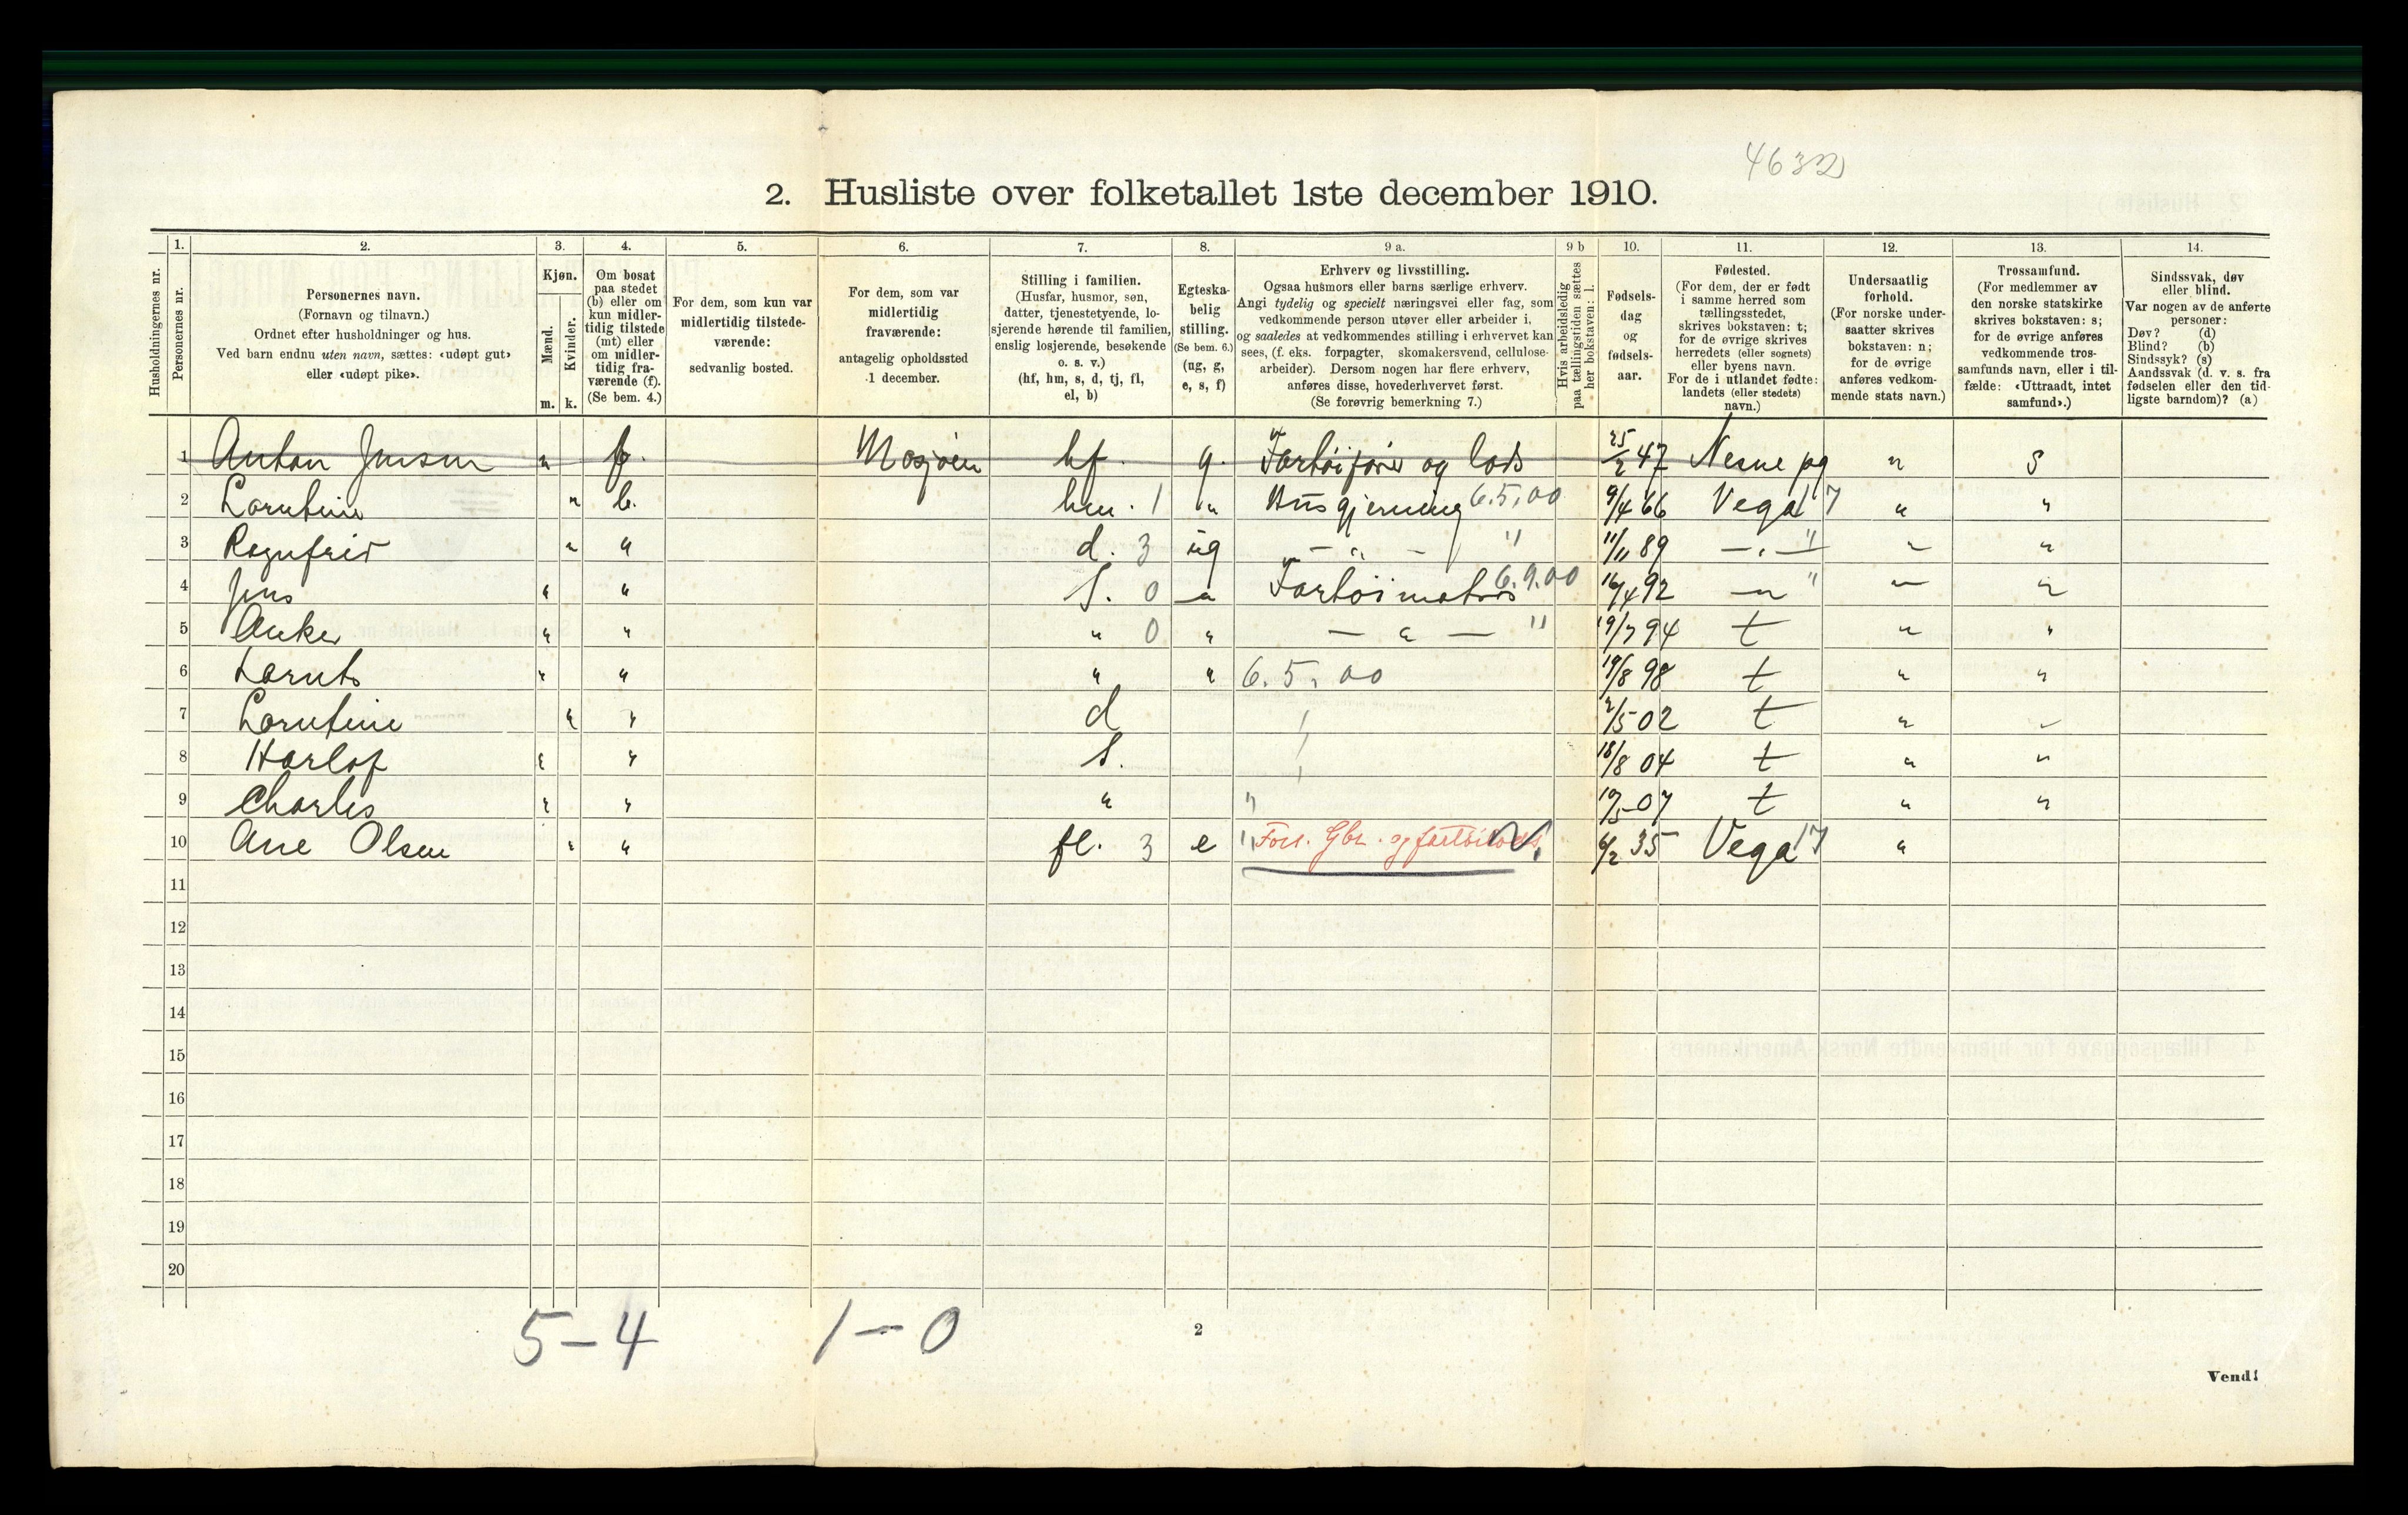 4632
2. Husliste over folketallet 1ste december 1910.
Husholdningernes nr.
1. Personernes nr.
2. Personernes navn.
(Fornavn og tilnavn.)
Ordnet efter husholdninger og hus.
Ved barn endnu uten navn, sættes: «udøpt gut»
eller «udøpt pike».
3. Kjøn.
Mænd. m.
Kvinder. k.
4. Om bosat
paa stedet
(b) eller om
kun midler-
tidig tilstede
(mt) eller
om midler-
tidig fra-
værende (f).
(Se bem. 4.)
5. For dem, som kun var
midlertidig tilstede-
værende:
sedvanlig bosted.
6. For dem, som var
midlertidig
fraværende:
antagelig opholdssted
1 december.
7. Stilling i familien.
(Husfar, husmor, søn,
datter, tjenestetyende, lo-
sjerende hørende til familien,
enslig losjerende, besøkende
o. s. v.)
(hf, hm, s, d, tj, fl,
el, b)
8. Egteska-
belig
stilling.
(Se bem. 6.)
(ug, g,
e, s, f)
9 a. Erhverv og livsstilling.
Ogsaa husmors eller barns særlige erhverv.
Angi tydelig og specielt næringsvei eller fag, som
vedkommende person utøver eller arbeider i,
og saaledes at vedkommendes stilling i erhvervet kan
sees, (f. eks. forpagter, skomakersvend, cellulose-
arbeider). Dersom nogen har flere erhverv,
anføres disse, hovederhvervet først.
(Se forøvrig bemerkning 7.)
9 b Hvis arbeidsledig
paa tællingstiden sættes
her bokstaven: l.
10. Fødsels-
dag
og
fødsels-
aar.
11. Fødested.
(For dem, der er født
i samme herred som
tællingsstedet,
skrives bokstaven: t;
for de øvrige skrives
herredets (eller sognets)
eller byens navn.
For de i utlandet fødte:
landets (eller stedets)
navn.)
12. Undersaatlig
forhold.
(For norske under-
saatter skrives
bokstaven: n;
for de øvrige
anføres vedkom-
mende stats navn.)
13. Trossamfund.
(For medlemmer av
den norske statskirke
skrives bokstaven: s;
for de øvrige anføres
vedkommende tros-
samfunds navn, eller i til-
fælde: «Uttraadt, intet
samfund».)
14. Sindssvak, døv
eller blind.
Var nogen av de anførte
personer:
Døv? (d)
Blind? (b)
Sindssyk? (s)
Aandssvak (d. v. s. fra
fødselen eller den tid-
ligste barndom)? (a)
1 Anton Jensen " f. Mosjøen hf. g. Fartøifører og lods 25/2 47 Nesne pg n s
2 Lorntine " b. hm. 1 " Husgjerning 6.5.00 9/4 66 Vega 17 " "
3 Ragnfrid " " d. 3 ug — " — " 11/11 89 — " — " " "
4 Jens " " S. 0 " Fartøimatros 6.9.00 16/4 92 — " " " "
5 Anker " " " 0 " — " — " 19/7 94 t " "
6 Lornts " " " " 6.5.00 19/8 98 t " "
7 Lorntine " " d 2/5 02 t " "
8 Harlof " " S. 18/8 04 t " "
9 Charles " " " " 19/5 07 t " "
10 Ane Olsen " " fl. 3 e " Fors. Gbr. og fartøilods 6/2 35 Vega 17 "
11
12
13
14
15
16
17
18
19
20
5–4 1–0
2
Vend!